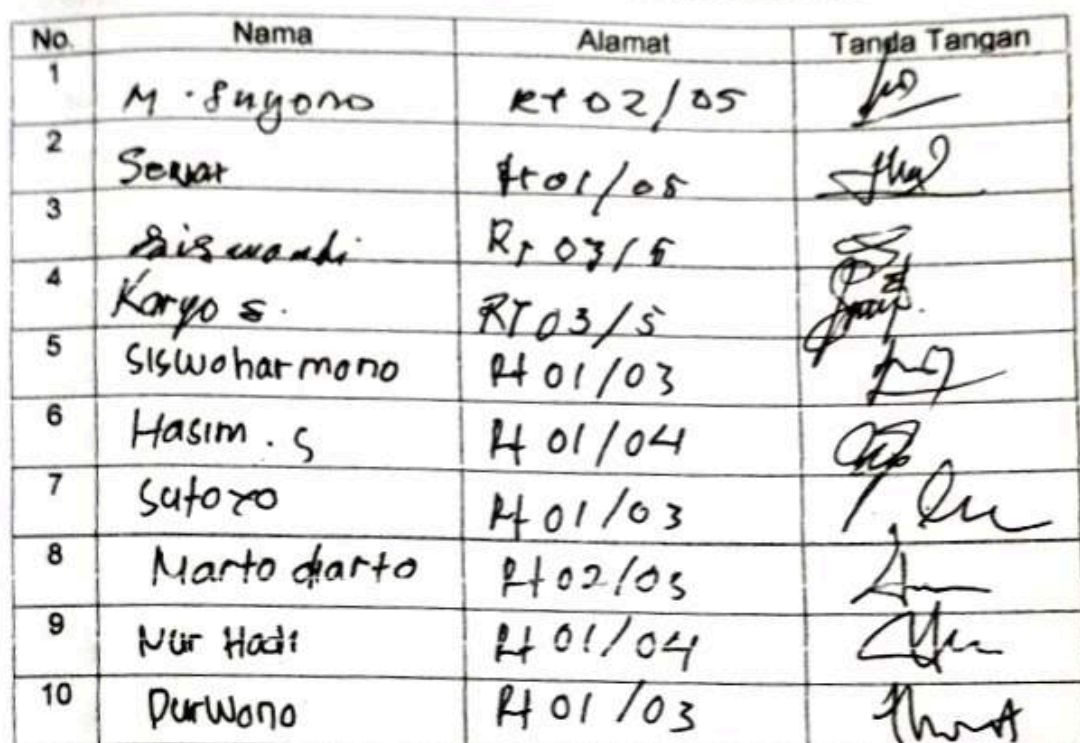 No. Nama Alamat Tanda Tangan
1 M. Suyono RT 02/05
2 Rt 01/05
3 Siswandi RT 03/5
4 Karyo S. RT 03/5
5 Siswoharmono Rt 01/03
6 Hasim. S Rt 01/04
7 Sutoyo Rt 01/03
8 Marto diarto Rt 02/05
9 Nur Hadi Rt 01/04
10 Purwono Rt 01/03